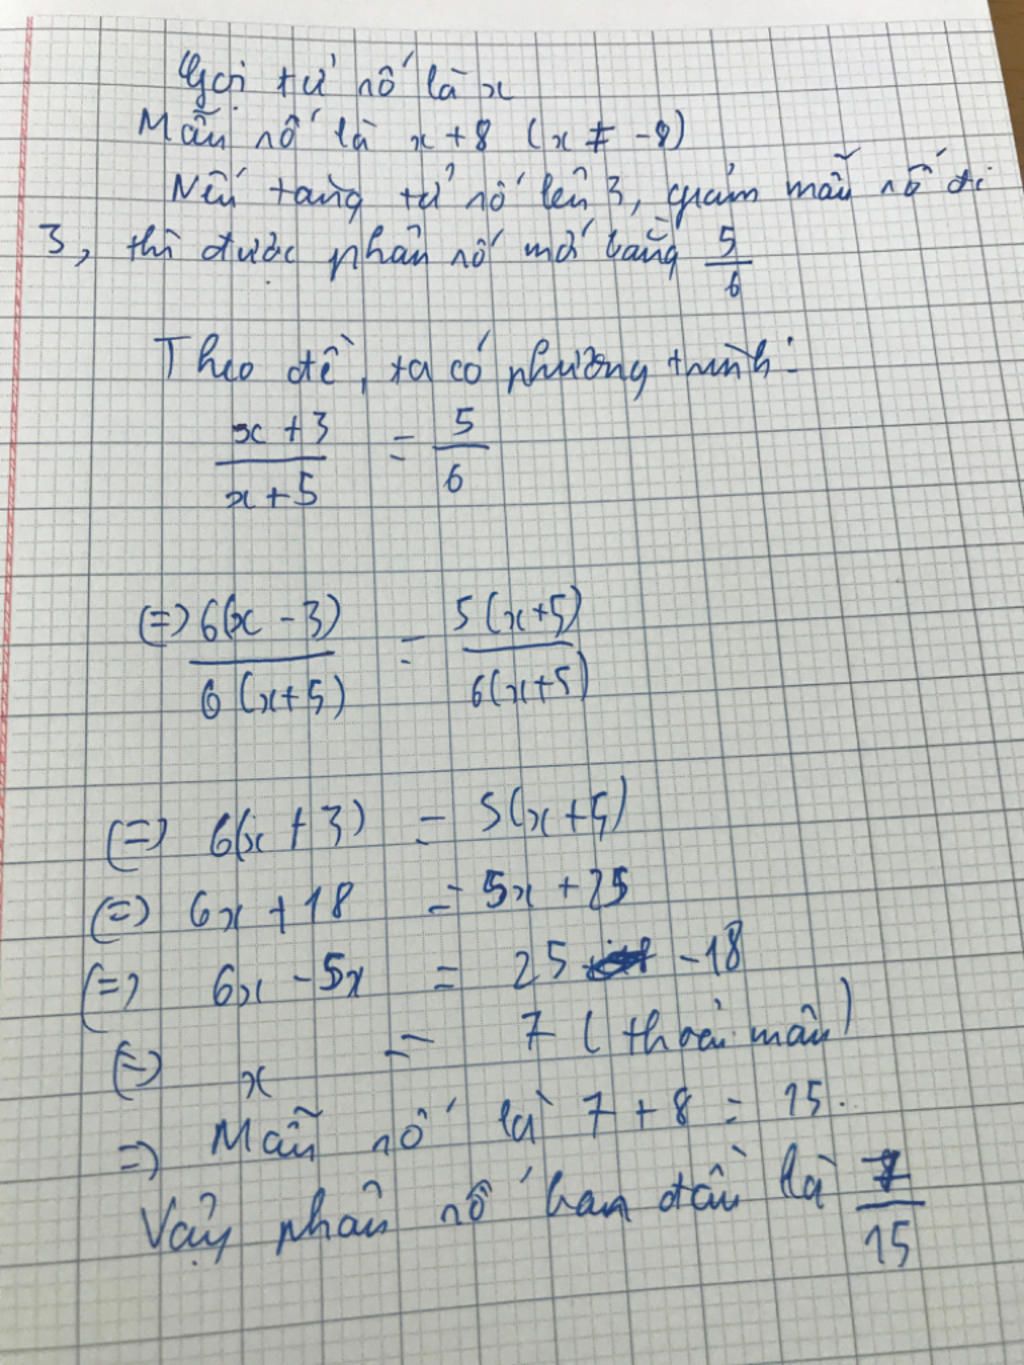 Gọi tử số là x
Mẫu số là x + 8 (x ≠ -8)
Nếu tăng tử số lên 3, giảm mẫu số đi
3, thì được phân số mới bằng 5/6
Theo đề, ta có phương trình:
x + 3 / x + 5 = 5 / 6
(=) 6(x - 3) / 6(x+5) = 5(x+5) / 6(x+5)
(=) 6(x + 3) = 5(x+5)
(=) 6x + 18 = 5x + 25
(=) 6x - 5x = 25 - 18
(=) x = 7 (thoả mãn)
=) Mẫu số là 7 + 8 = 15.
Vậy phân số ban đầu là 7/15